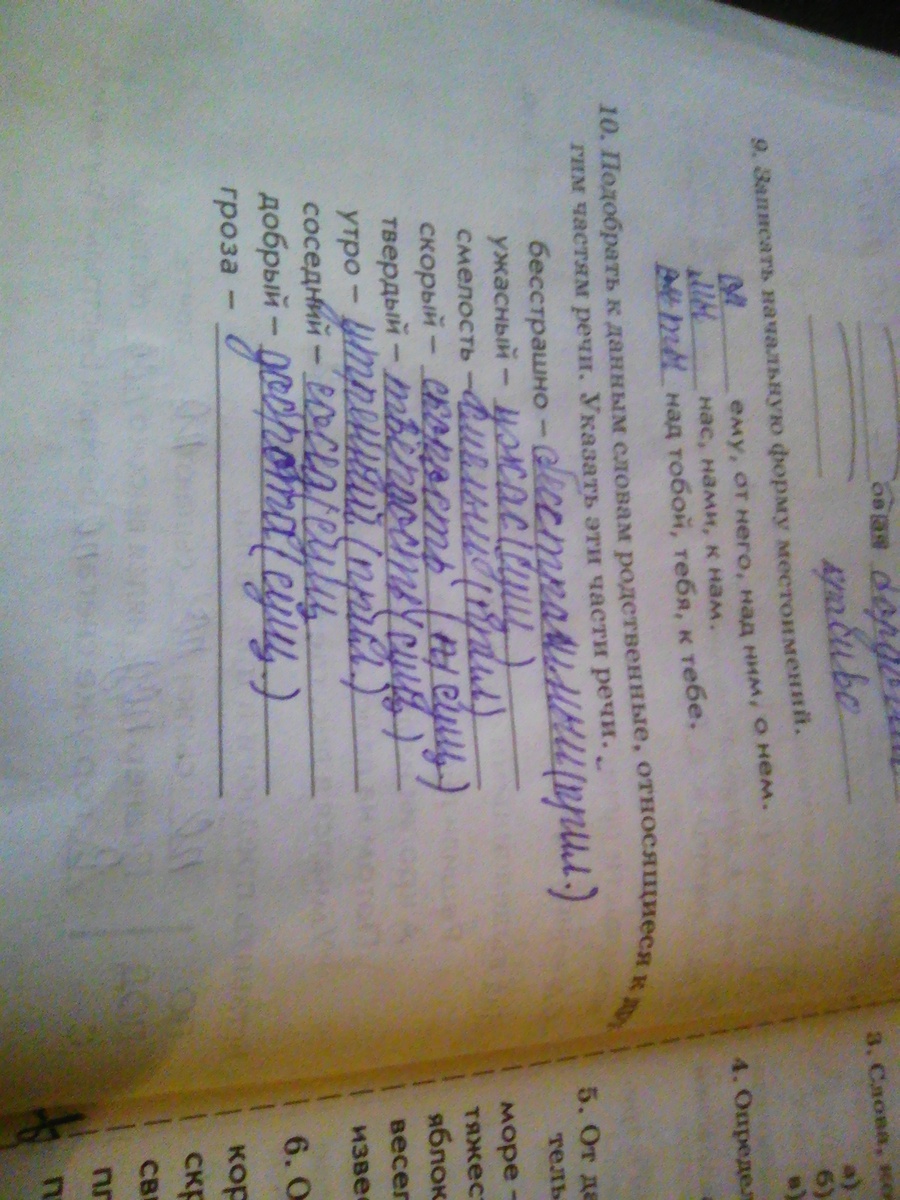 овая
красиво
9. Записать начальную форму местоимений.
ему, от него, над ним, о нем.
мы нас, нами, к нам.
ты над тобой, тебя, к тебе.
10. Подобрать к данным словам родственные, относящиеся к дру
гим частям речи. Указать эти части речи.
бесстрашно – (прил.)
ужасный – ужас (сущ)
смелость – (прил)
скорый – скорость (сущ.)
твердый – (сущ)
утро – утренний (прил.)
соседний – сосед (сущ
добрый – доброта (сущ.)
гроза –
3. Слова,
а)
б)
в)
4. Опреде
5. От да
тель
море –
тяжес
яблок
весел
извес
6. О
кор
скр
св
пл
п